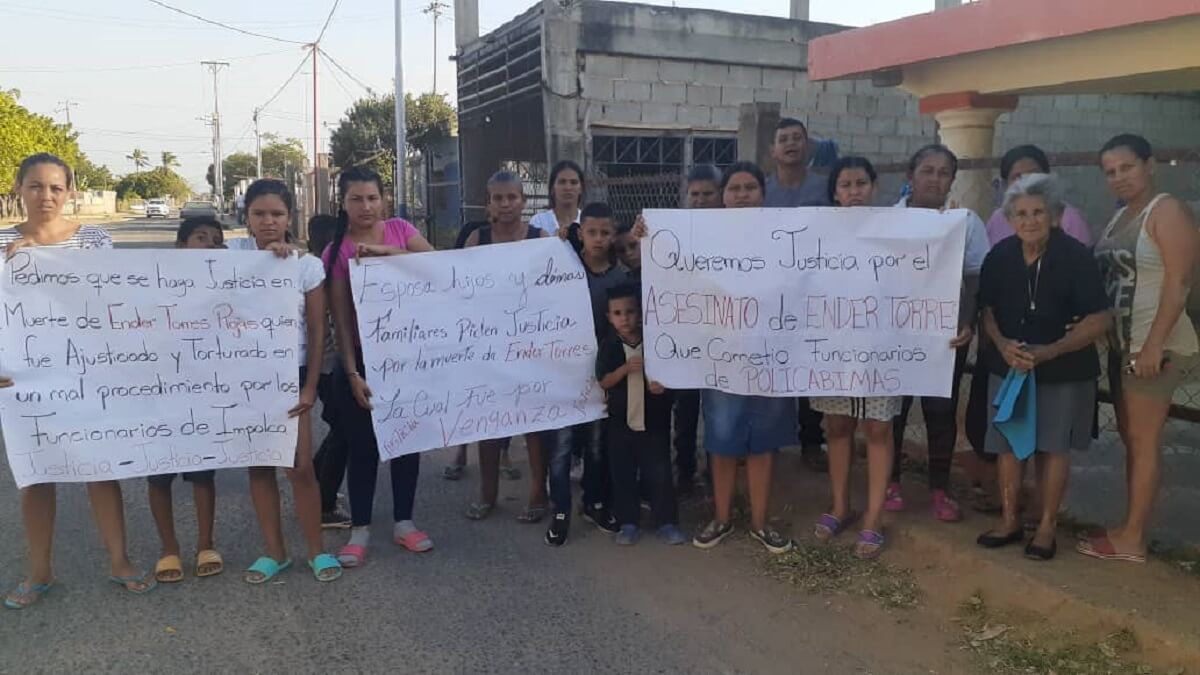 Pedimos que se haga Justicia en
Muerte de Ender Torres Rojas quien
fue Ajusticiado y Torturado en
un mal procedimiento por los
Funcionarios de Impolca
Justicia - Justicia - Justicia
Esposa hijos y demas
Familiares Piden Justicia
por la muerte de Ender Torres
La Cual fue por
Venganza
Justicia
Queremos Justicia por el
ASESINATO de ENDER TORRE
Que Cometio Funcionarios
de POLICABIMAS